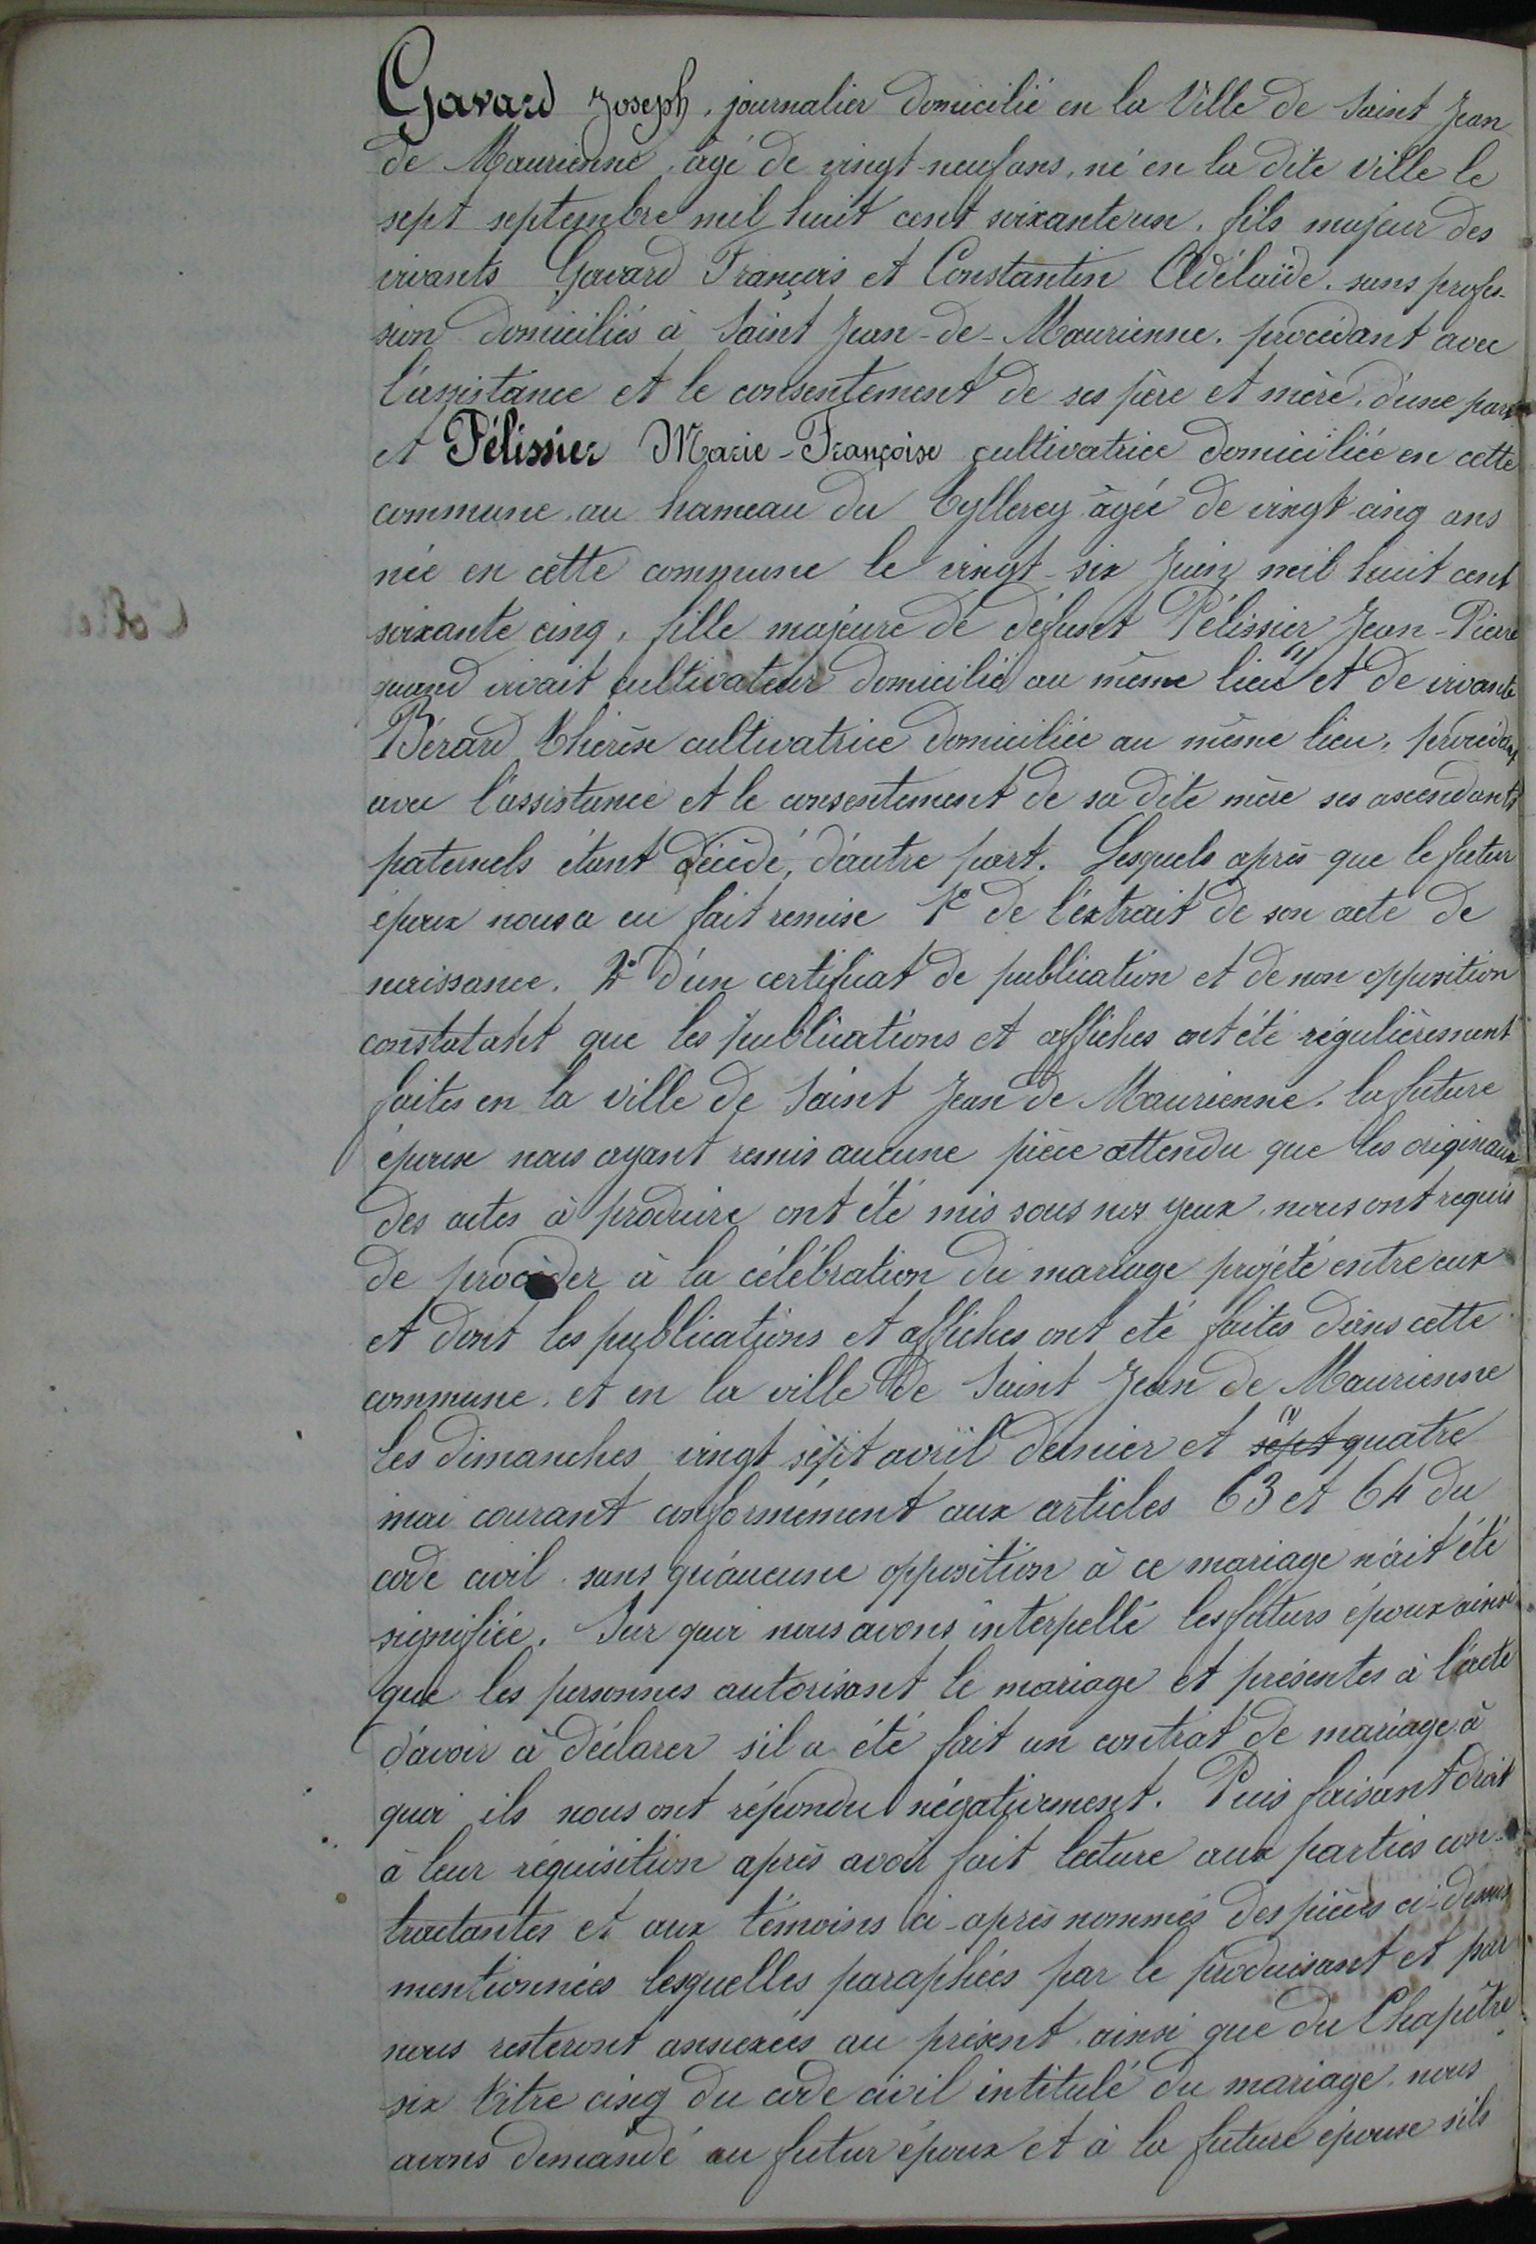 Gavard Joseph, journalier domicilié en la Ville de Saint Jean
de Maurienne, âgé de vingt-neuf ans, né en la dite ville le
sept septembre mil huit cent soixante un, fils majeur des
vivants Gavard François et Constantin Adélaïde, sans profes-
sion domiciliés à Saint Jean-de-Maurienne, procédant avec
l'assistance et le consentement de ses père et mère, d'une part
et Pélissier Marie-Françoise cultivatrice domiciliée en cette
commune au hameau du âgée de vingt-cinq ans
née en cette commune le vingt-six Juin mil huit cent
soixante cinq, fille majeure de défunt Pélissier Jean-Pierre
quand vivait cultivateur domicilié au même lieu et de vivante
Bérard Thérèse cultivatrice domiciliée au même lieu, procédant
avec l'assistance et le consentement de sa dite mère ses ascendants
paternels étant décédé, d'autre part. Lesquels après que le futur
époux nous a eu fait remise 1º de l'extrait de son acte de
naissance. 2º d'un certificat de publication et de non opposition
constatant que les publications et affiches ont été régulièrement
faites en la ville de Saint Jean de Maurienne. la future
épouse nous ayant remis aucune pièce attendu que les originaux
des actes à produire ont été mis sous nos yeux, nous ont requis
de procéder à la célébration du mariage projété entre eux
et dont les publications et affiches ont eté faites dans cette
commune, et en la ville de Saint Jean de Maurienne
les dimanches vingt sept avril dernier et sept quatre
mai courant conformément aux articles 63 et 64 du
code civil sans qu'aucune opposition à ce mariage n'ait été
signifiée. Sur quoi nous avons interpellé les futurs époux ainsi
que les personnes autorisant le mariage et présentes à l'acte
d'avoir à déclarer s'il a été fait un contrat de mariage à
quoi ils nous ont répondu négativement. Puis faisant droit
à leur réquisition après avoir fait lecture aux parties con-
tractantes et aux témoins ci-après nommés des pièces ci-dessus
mentionnées lesquelles paraphées par le produisant et par
nous resteront annexées au présent, ainsi que du Chapître
six titre cinq du code civil intitulé du mariage. nous
avons demandé au futur époux et à la future épouse s'ils